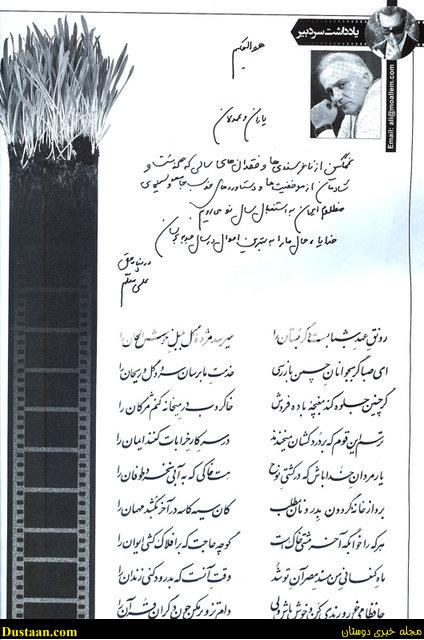 یادداشت سردبیر
Email: ali@moallem.com
هو الحکیم
یاران و همدلان
غمگین از ناخرسندی‌ها و فقدان‌های سالی که گذشت و
شادمان از موفقیت‌ها و دستاوردهای خوب جامعه و سینمای
مظلوم ایران به استقبال سال نو می‌رویم
خدایا، حال ما را به بهترین احوال در سال جدید برسان
در پناه حق
علی معلم
رونق عهد شبابست دگر بستان را میرسد مژده گل بلبل خوش الحان را
ای صبا گر بجوانان چمن بازرسی خدمت ما برسان سرو و گل و ریحان را
گر چنین جلوه کند مغبچه باده فروش خاکروب در میخانه کنم مژگان را
ترسم این قوم که بر دردکشان میخندند در سر کار خرابات کنند ایمان را
یار مردان خدا باش که در کشتی نوح هست خاکی که به آبی نخرد طوفان را
برو از خانه گردون بدر و نان مطلب کان سیه کاسه در آخر بکشد مهمان را
هر که را خوابگه آخر مشتی خاک است گو چه حاجت که بر افلاک کشی ایوان را
ماه کنعانی من مسند مصر آن تو شد وقت آنست که بدرود کنی زندان را
حافظا می خور و رندی کن و خوش باش ولی دام تزویر مکن چون دگران قرآن را
Dustaan.com
مجله خبری دوستان